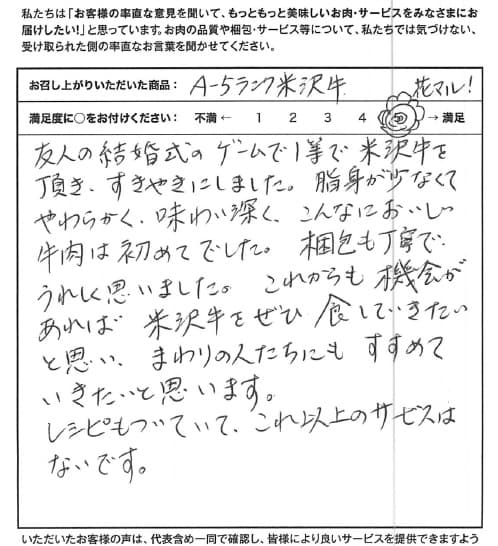 私たちは「お客様の率直な意見を聞いて、もっともっと美味しいお肉・サービスをみなさまにお
届けしたい!」と思っています。お肉の品質や梱包・サービス等について、私たちでは気づけない、
受け取られた側の率直なお言葉を聞かせてください。
お召し上がりいただいた商品: A-5ランク米沢牛 花マル!
満足度に○をお付けください: 不満 ← 1 2 3 4 5 → 満足
友人の結婚式のゲームで1等で米沢牛を
頂き、すきやきにしました。脂身が少なくて
やわらかく、味わい深く、こんなにおいしい
牛肉は初めてでした。梱包も丁寧で、
うれしく思いました。これからも機会が
あれば米沢牛をぜひ食していきたい
と思い、まわりの人たちにもすすめて
いきたいと思います。
レシピもついていて、これ以上のサービスは
ないです。
いただいたお客様の声は、代表含め一同で確認し、皆様により良いサービスを提供できますよう